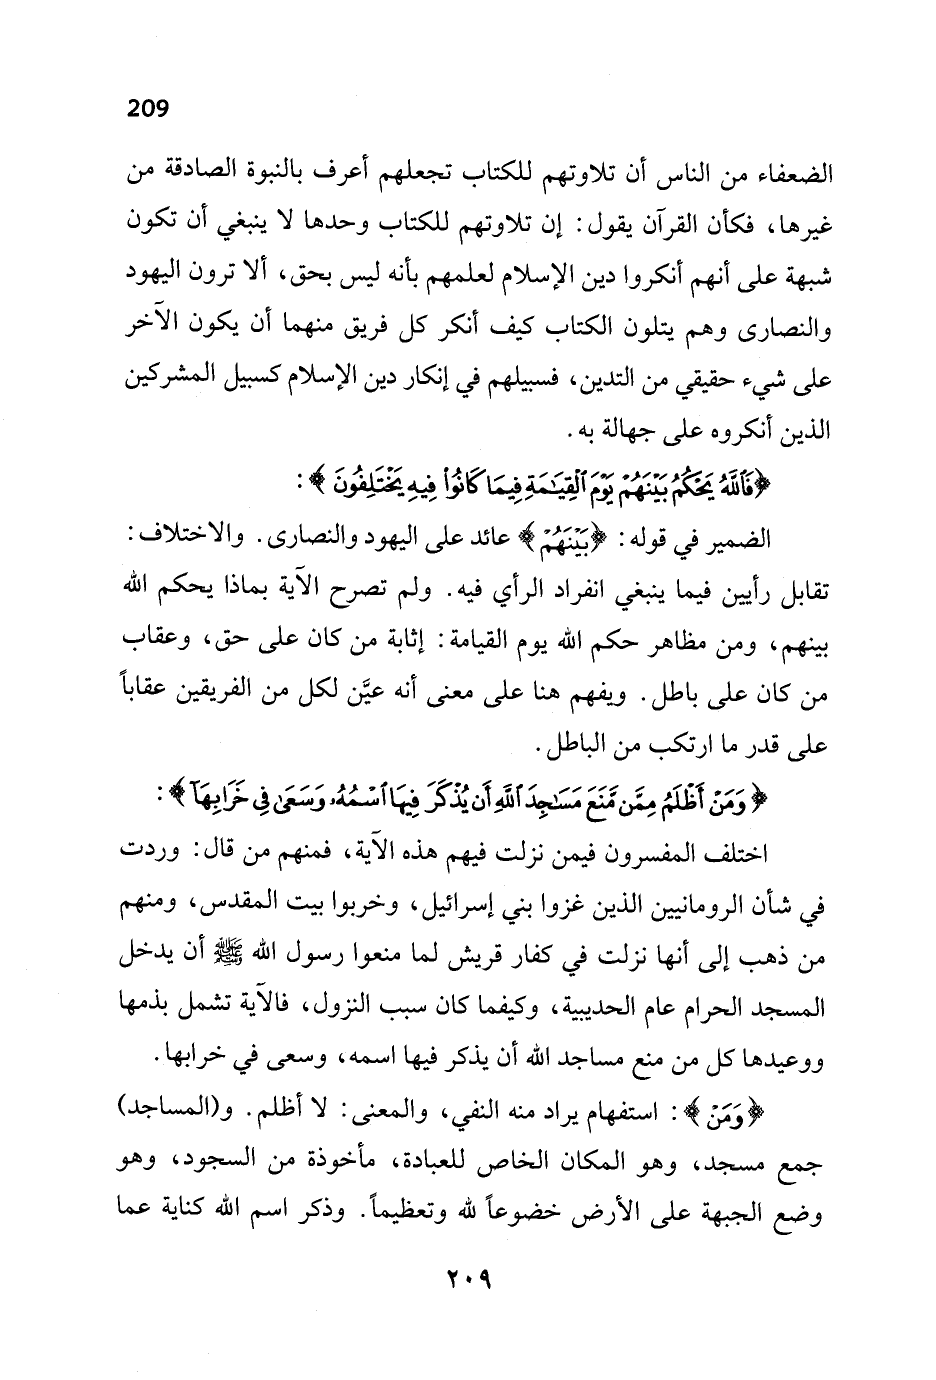 209
الضعفاء من الناس أن تلاوتهم للكتاب تجعلهم أعرف بالنبوة الصادقة من
غيرها، فكأن القرآن يقول: إن تلاوتهم للكتاب وحدها لا ينبغي أن تكون
شبهة على أنهم أنكروا دين الإسلام لعلمهم بأنه ليس بحق، ألا ترون اليهود
والنصارى وهم يتلون الكتاب كيف أنكر كل فريق منهما أن يكون الآخر
على شيء حقيقي من التدين، فسبيلهم في إنكار دين الإسلام كسبيل المشركين
الذين أنكروه على جهالة به.
﴿فَٱللَّهُ يَحْكُمُ بَيْنَهُمْ يَوْمَ ٱلْقِيَٰمَةِ فِيمَا كَانُوا۟ فِيهِ يَخْتَلِفُونَ﴾:
الضمير في قوله: ﴿بَيْنَهُمْ﴾ عائد على اليهود والنصارى. والاختلاف:
تقابل رأيين فيما ينبغي انفراد الرأي فيه. ولم تصرح الآية بماذا يحكم الله
بينهم، ومن مظاهر حكم الله يوم القيامة: إثابة من كان على حق، وعقاب
من كان على باطل. ويفهم هنا على معنى أنه عيَّن لكل من الفريقين عقاباً
على قدر ما ارتكب من الباطل.
﴿وَمَنْ أَظْلَمُ مِمَّن مَّنَعَ مَسَٰجِدَ ٱللَّهِ أَن يُذْكَرَ فِيهَا ٱسْمُهُۥ وَسَعَىٰ فِي خَرَابِهَآ﴾:
اختلف المفسرون فيمن نزلت فيهم هذه الآية، فمنهم من قال: وردت
في شأن الرومانيين الذين غزوا بني إسرائيل، وخربوا بيت المقدس، ومنهم
من ذهب إلى أنها نزلت في كفار قريش لما منعوا رسول الله ﷺ أن يدخل
المسجد الحرام عام الحديبية، وكيفما كان سبب النزول، فالآية تشمل بذمها
ووعيدها كل من منع مساجد الله أن يذكر فيها اسمه، وسعى في خرابها.
﴿وَمَنْ﴾: استفهام يراد منه النفي، والمعنى: لا أظلم. و(المساجد)
جمع مسجد، وهو المكان الخاص للعبادة، مأخوذة من السجود، وهو
وضع الجبهة على الأرض خضوعاً لله وتعظيماً. وذكر اسم الله كناية عما
٢٠٩